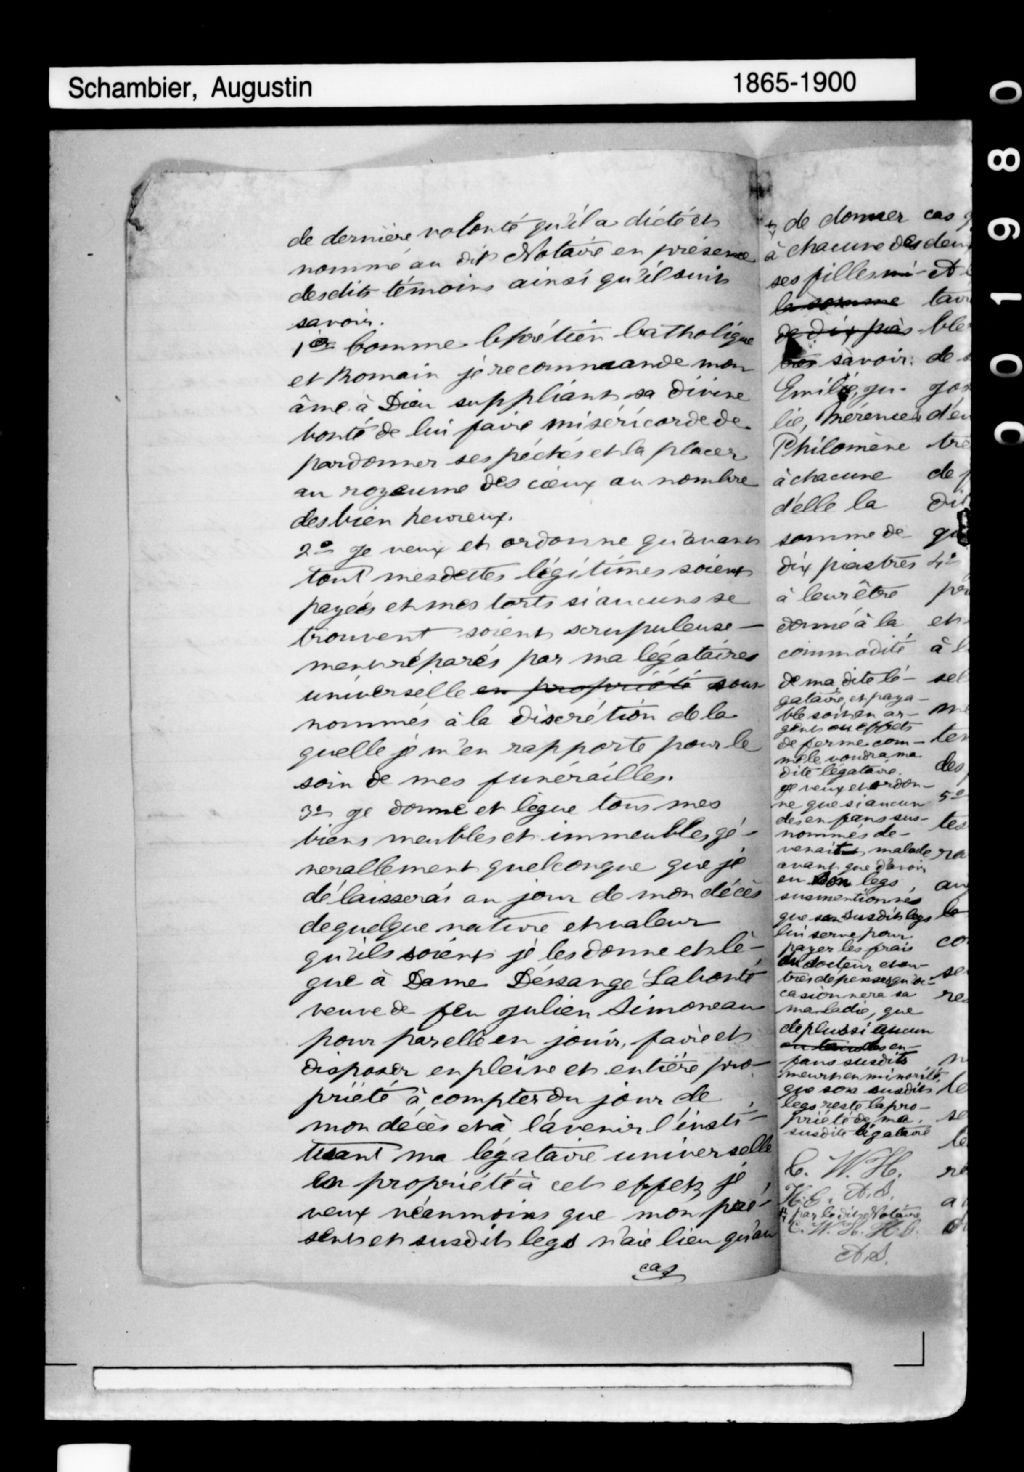 Schambier, Augustin
1865-1900
001980
de dernière volonté qu'il a dicté et
nommé au dit Notaire en présence
desdits témoins ainsi qu'il suit
savoir.
1er Comme Chrétien Catholique
et Romain je recommande mon
âme à Dieu suppliant sa divine
bonté de lui faire miséricorde de
pardonner ses péchés et la placer
au royaume des cieux au nombre
des bien heureux.
2o Je veux et ordonne qu'avant
tout mes dettes légitimes soient
payées et mes torts si aucuns se
trouvent soient scrupuleuse-
ment réparés par ma légataires
universelle en propriété sous
nommés à la discrétion de la
quelle je m'en rapporte pour le
soin de mes funérailles.
3o Je donne et lègue tous mes
biens meubles et immeubles gé-
nerallement quelconque que je
délaisserai au jour de mon décès
de quelque nature et valeur
qu'ils soient je les donne et lè-
gue à Dame Désange Labonté
veuve de feu Julien Simoneau
pour par elle en jouir, faire et
disposer en pleine et entière pro-
priété à compter du jour de
mon décès et à l'avenir l'insti-
tuant ma légataire universelle
en propriété à cet effet, je
veux néanmoins que mon pré-
sent et susdit legs n'aie lieu qu'au
cas
de donner
à chacune des deux
ses filles
la somme
de dix pias
savoir:
Emilie,
lie, Mérence
Philomène
à chacune
d'elle la
somme de
dix piastres
à leur être
donné à la
commodité
de ma dite lé-
gataire et paya-
ble soit en ar-
gent ou effets
de ferme com-
me le voudra ma
dite légataire.
Je veux et ordon-
ne que si aucun
des enfans sus-
nommés de-
venait malade
avant que d'avoir
eu son legs
susmentionnés
que son susdit legs
lui serve pour
payer les frais
du docteur et au-
tres dépenses qu'oc-
casionnera sa
maladie, que
de plus si aucun
en-
fans susdits
meurt en minorité,
que son susdit
legs reste la pro-
priété de ma
susdite légataire
C. W. H.
H. C. A. S.
par le dit Notaire
C. W. H. H. C.
A. S.